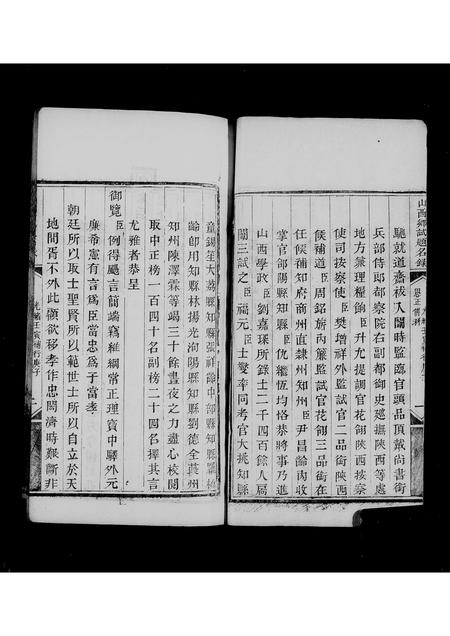 山西鄉試題名錄
馳就道齋祓入闈時監臨官頭品頂戴尚書銜
兵部侍郎都察院右副都御史巡撫陝西等處
地方兼理糧餉臣升允提調官花翎陝西按察
使司按察使臣樊增祥外監試官二品銜陝西
候補道臣周銘旂內簾監試官花翎三品銜在
任候補知府商州直隸州知州臣尹昌齡內收
掌官郃陽縣知縣臣仇繼恆均恪恭將事乃進
山西學政臣劉嘉琛所錄士二千四百餘人扃
闈三試之臣福元臣士燮率同考官大挑知縣
童錫笙大荔縣知縣張祥齡中部縣知縣
齡即用知縣林揚光洵陽縣知縣劉德全
知州陳澤霖等竭三十餘晝夜之力盡心校閱
取中正榜一百四十名副榜二十四名擇其言
尤雅者恭呈
御覽臣例得颺言簡端竊維綱常正理寰中驛外元
廉希憲有言為臣當忠為子當孝
朝廷所以取士聖賢所以範世士所以自立於天
地間胥不外此顧欲移孝作忠閎濟時艱斷非
光緒壬寅補行庚子